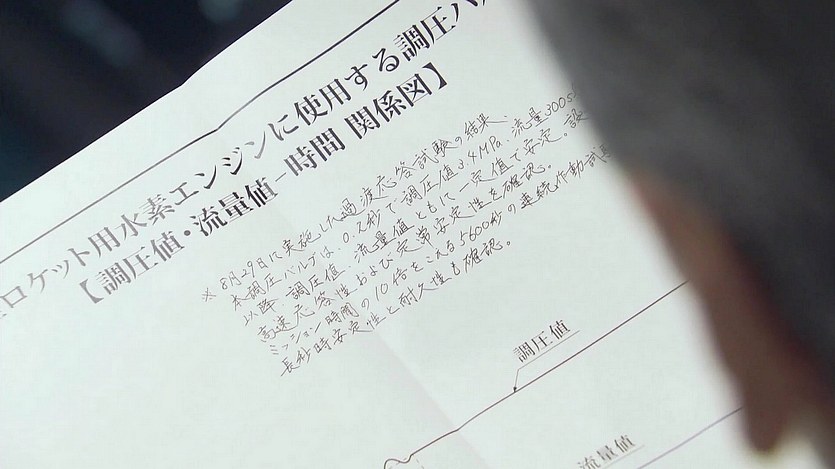 ロケット用水素エンジンに使用する調圧バ
【調圧値・流量値−時間 関係図】
※ 8月29日に実施した過渡応答試験の結果、
本調圧バルブは、0.2秒で調圧値3.4MPa、流量300s
以降、調圧値、流量値ともに一定値で安定。設
高速応答性および定常安定性を確認。
ミッション時間の10倍をこえる5600秒の連続作動試
長秒時安定性と耐久性も確認。
調圧値
流量値